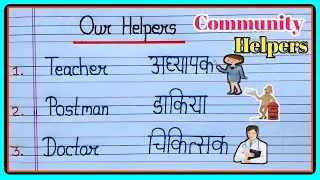 Our Helpers
Community
Helpers
1. Teacher अध्यापक
2. Postman डाकिया
3. Doctor चिकित्सक